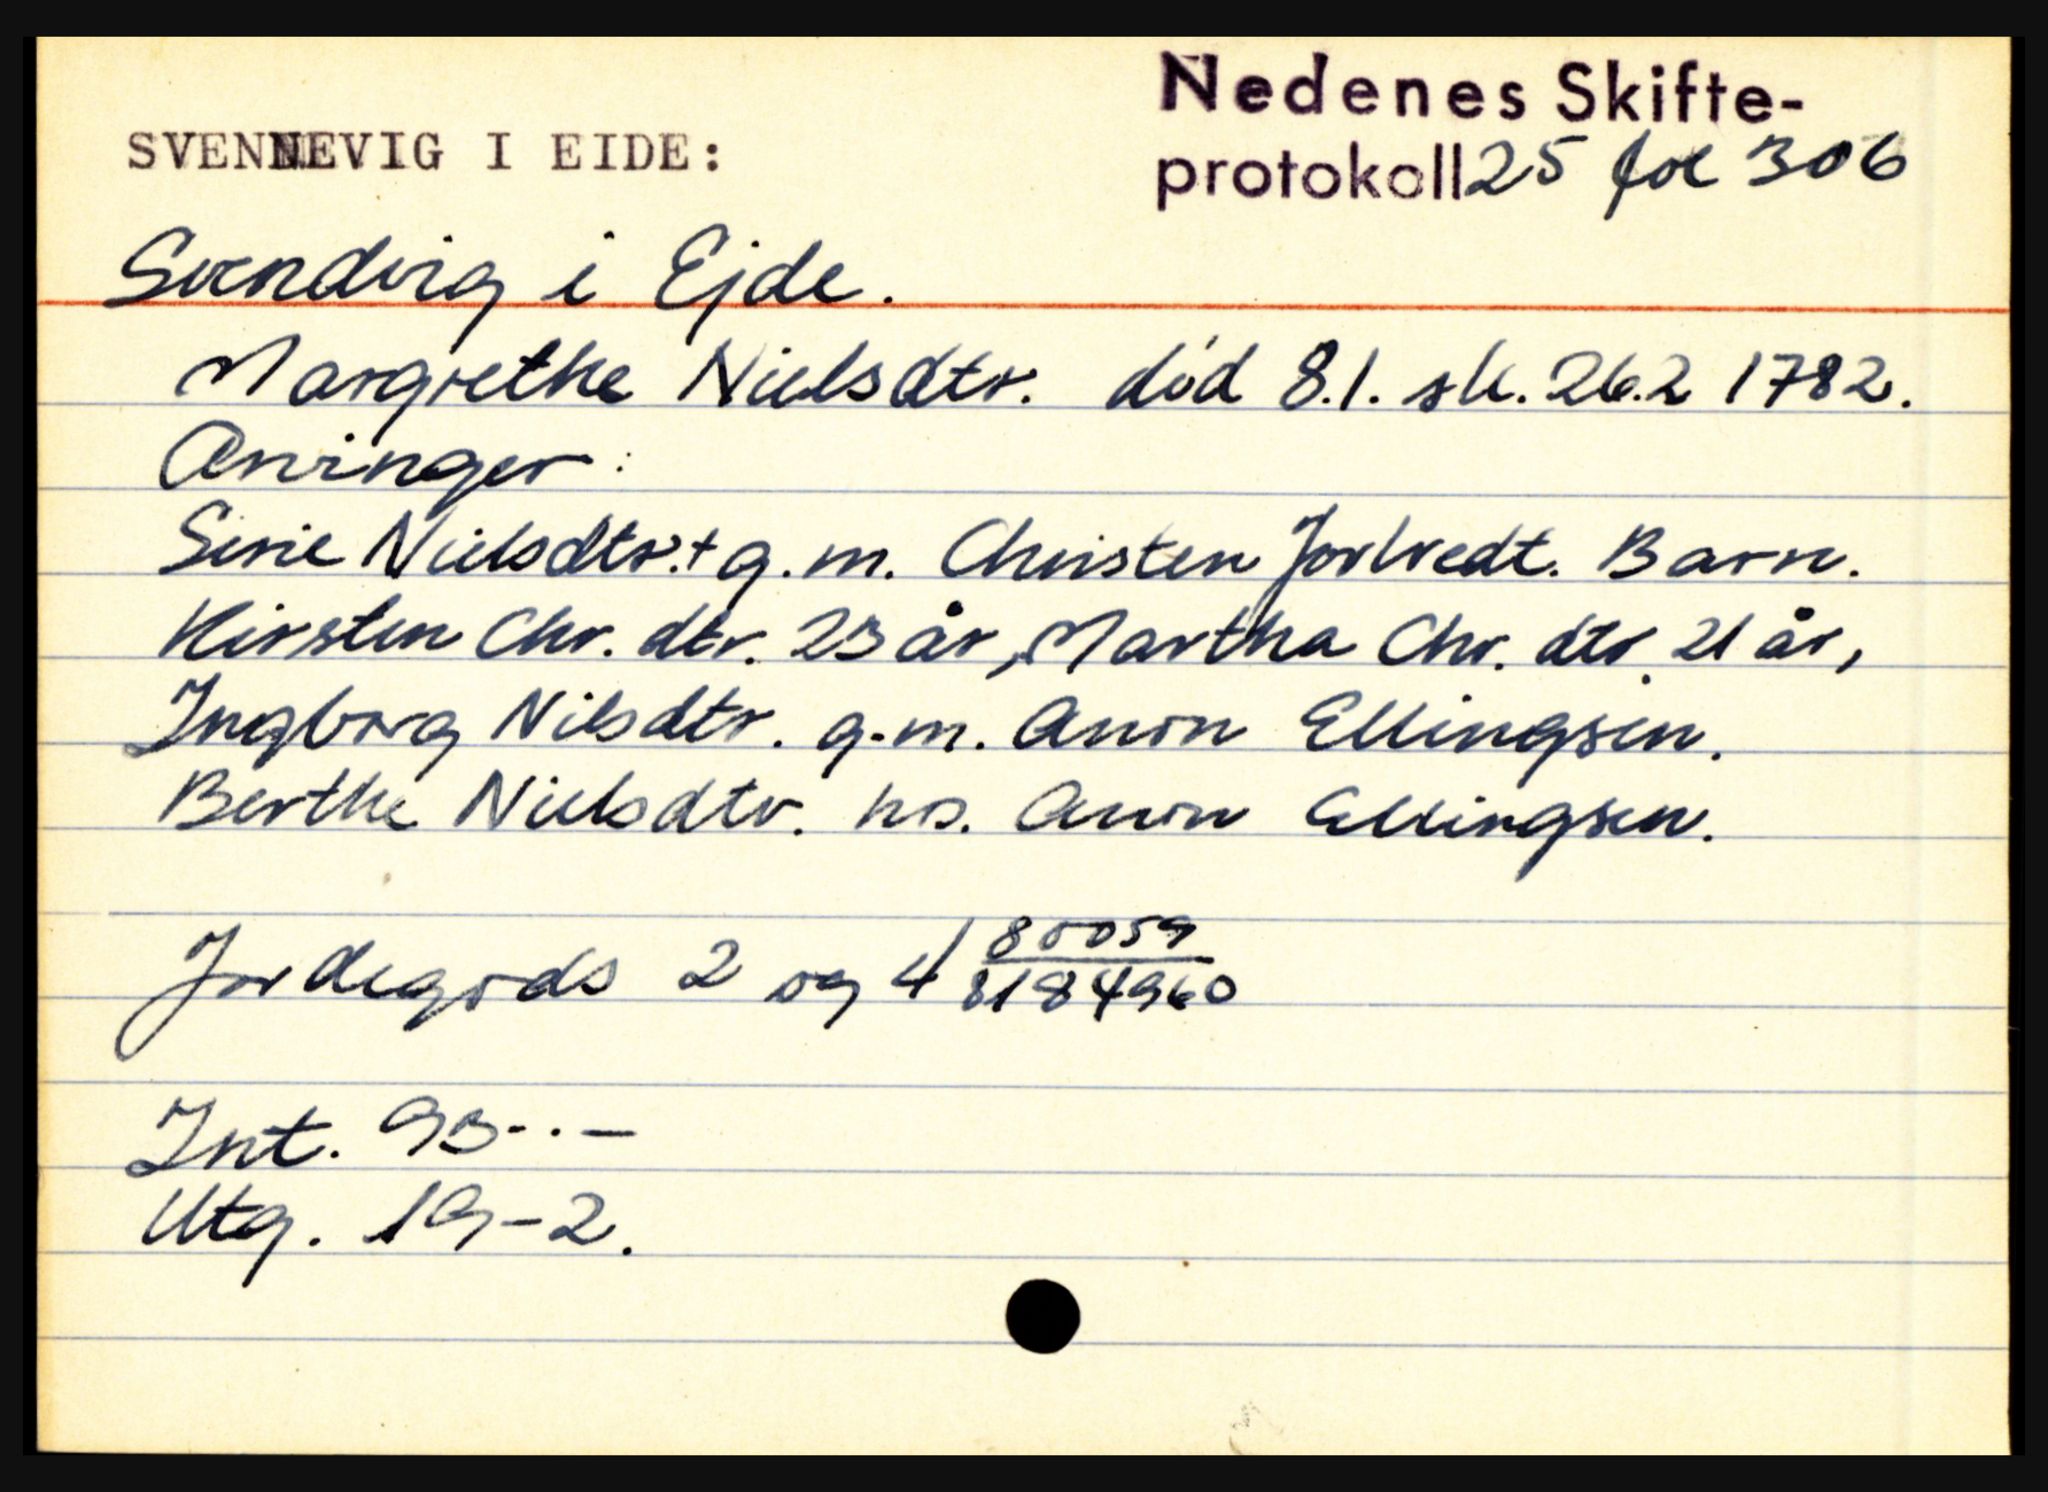 Nedenes Skifte-
SVENNEVIG I EIDE:
protokoll 25 fol 306
Svendvig i Ejde.
Margrethe Nielsdtr. död 8.1. sk. 26.2 1782.
Arvinger:
Sirie Nielsdtr.+ g.m. Christen Jortvedt. Barn.
Kirsten Chr. dtr. 23 år, Martha Chr. dtr. 21 år,
Ingborg Nilsdtr. g.m. Aaron Ellingsen.
Berthe Nielsdtr. hos. Aaron Ellingsen.
Jordegods 2 og 4 80059/8184960
Int. 93-.-
Utg. 19-2.